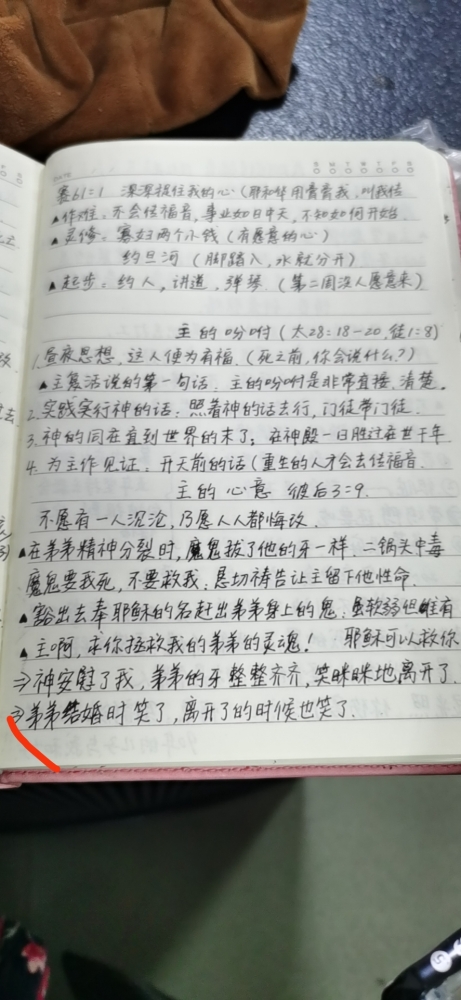 赛61=1 深深抓住我的心（耶和华用膏膏我，叫我传
▲作难：不会传福音，事业如日中天，不知如何开始
▲灵修：寡妇两个小钱（有愿意的心）
约旦河（脚踏入，水就分开）
▲起步：约人，讲道，弹琴（第二周没人愿意来）
主的吩咐（太28=18-20,徒1=8）
1.昼夜思想，这人便为有福.（死之前，你会说什么？）
▲主复活说的第一句话.主的吩咐是非常直接，清楚。
2.实践实行神的话：照着神的话去行，门徒带门徒.
3.神的同在直到世界的末了；在神殿一日胜过在世千年
4.为主作见证.升天前的话（重生的人才会去传福音.
主的心意 彼后3=9.
不愿有一人沉沦，乃愿人人都悔改.
▲在弟弟精神分裂时，魔鬼拔了他的牙一样.二锅头中毒
魔鬼要我死，不要救我：恳切祷告让主留下他性命.
▲豁出去奉耶稣的名赶出弟弟身上的鬼：虽软弱但唯有
▲主啊，求你拯救我的弟弟的灵魂！ 耶稣可以救你
⇒神安慰了我，弟弟的牙整整齐齐，笑眯眯地离开了.
⇒弟弟结婚时笑了，离开了的时候也笑了.